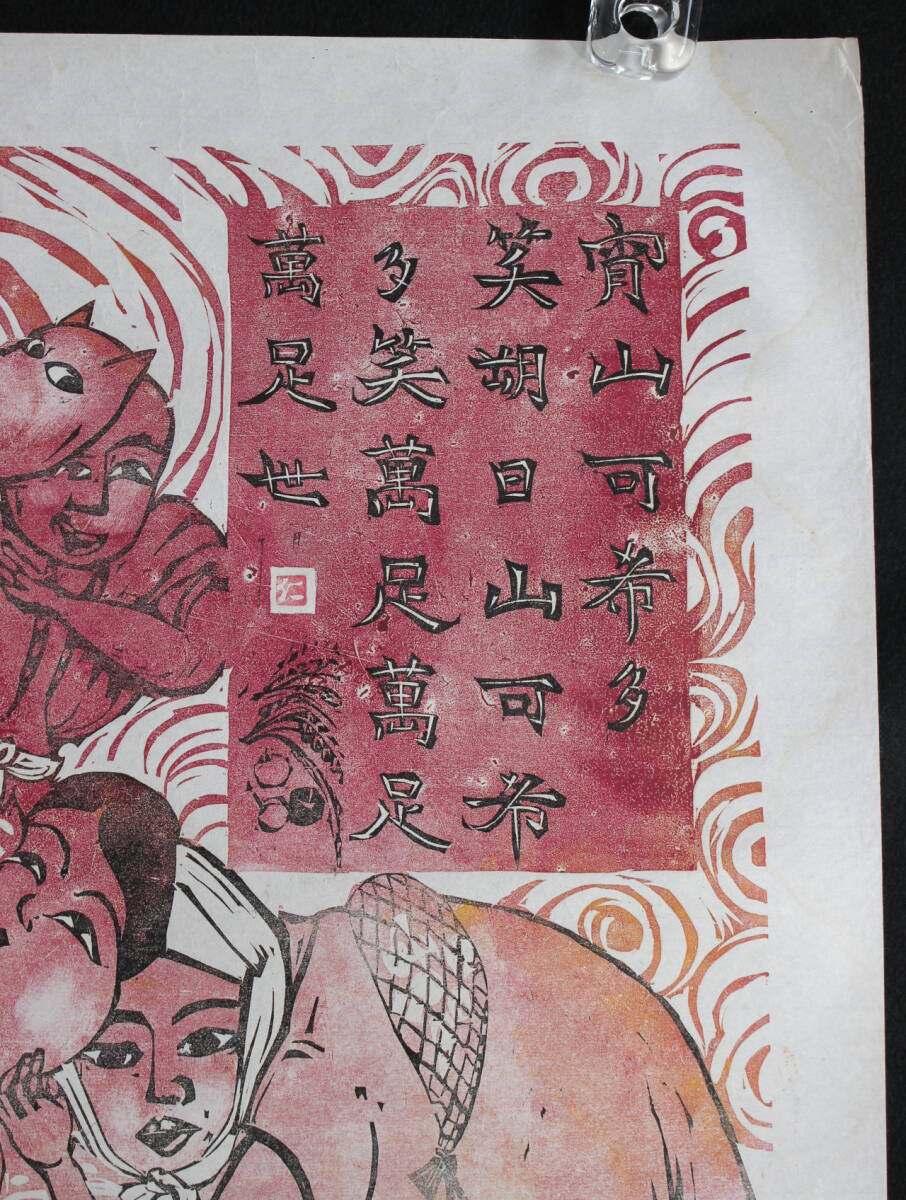 宵山可希多
笑朔日山可希
多笑萬足萬足
萬足世
仁